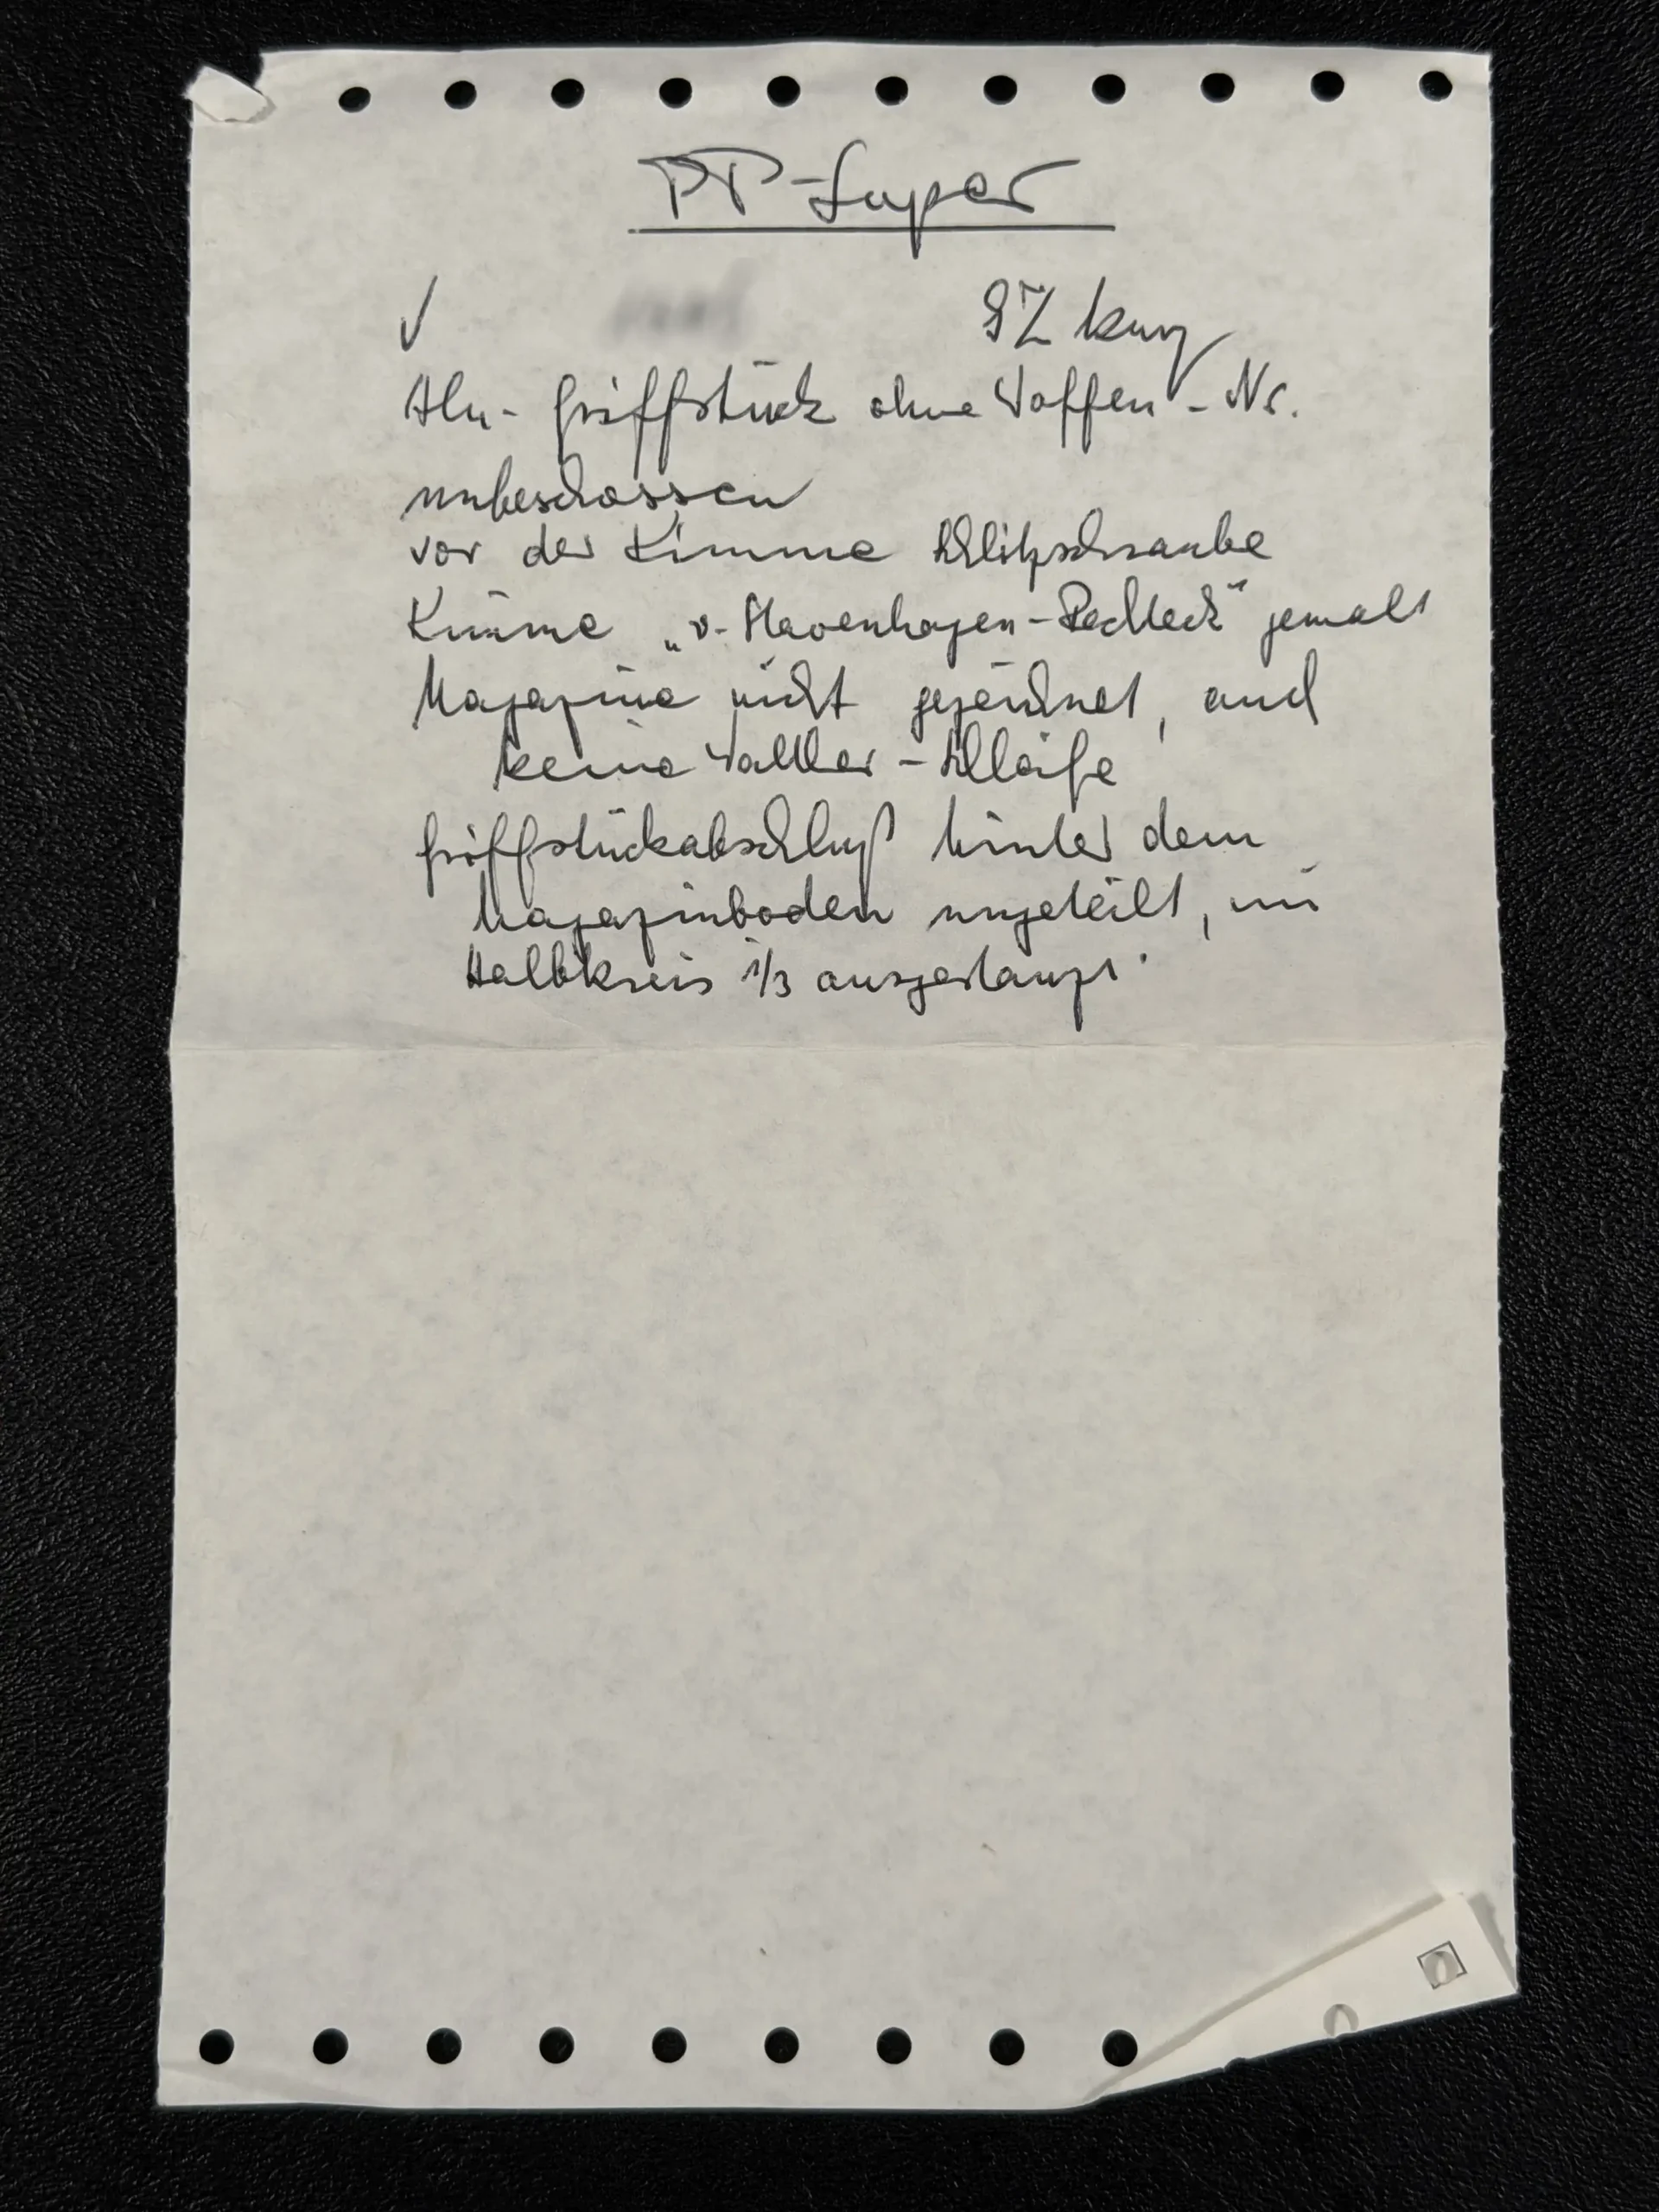 PP-Super
✓ 9Z kurz
Alu-Griffstück ohne Waffen-Nr.
unbeschossen
vor der Kimme Schlitzschraube
Kimme „v-Stavenhagen-Rechteck" gemalt
Magazine nicht gezeichnet, auch
keine Walther-Schleife
Griffstückabschluß hinter dem
Magazinboden ungeteilt, im
Halbkreis 1/3 ausgestanzt.